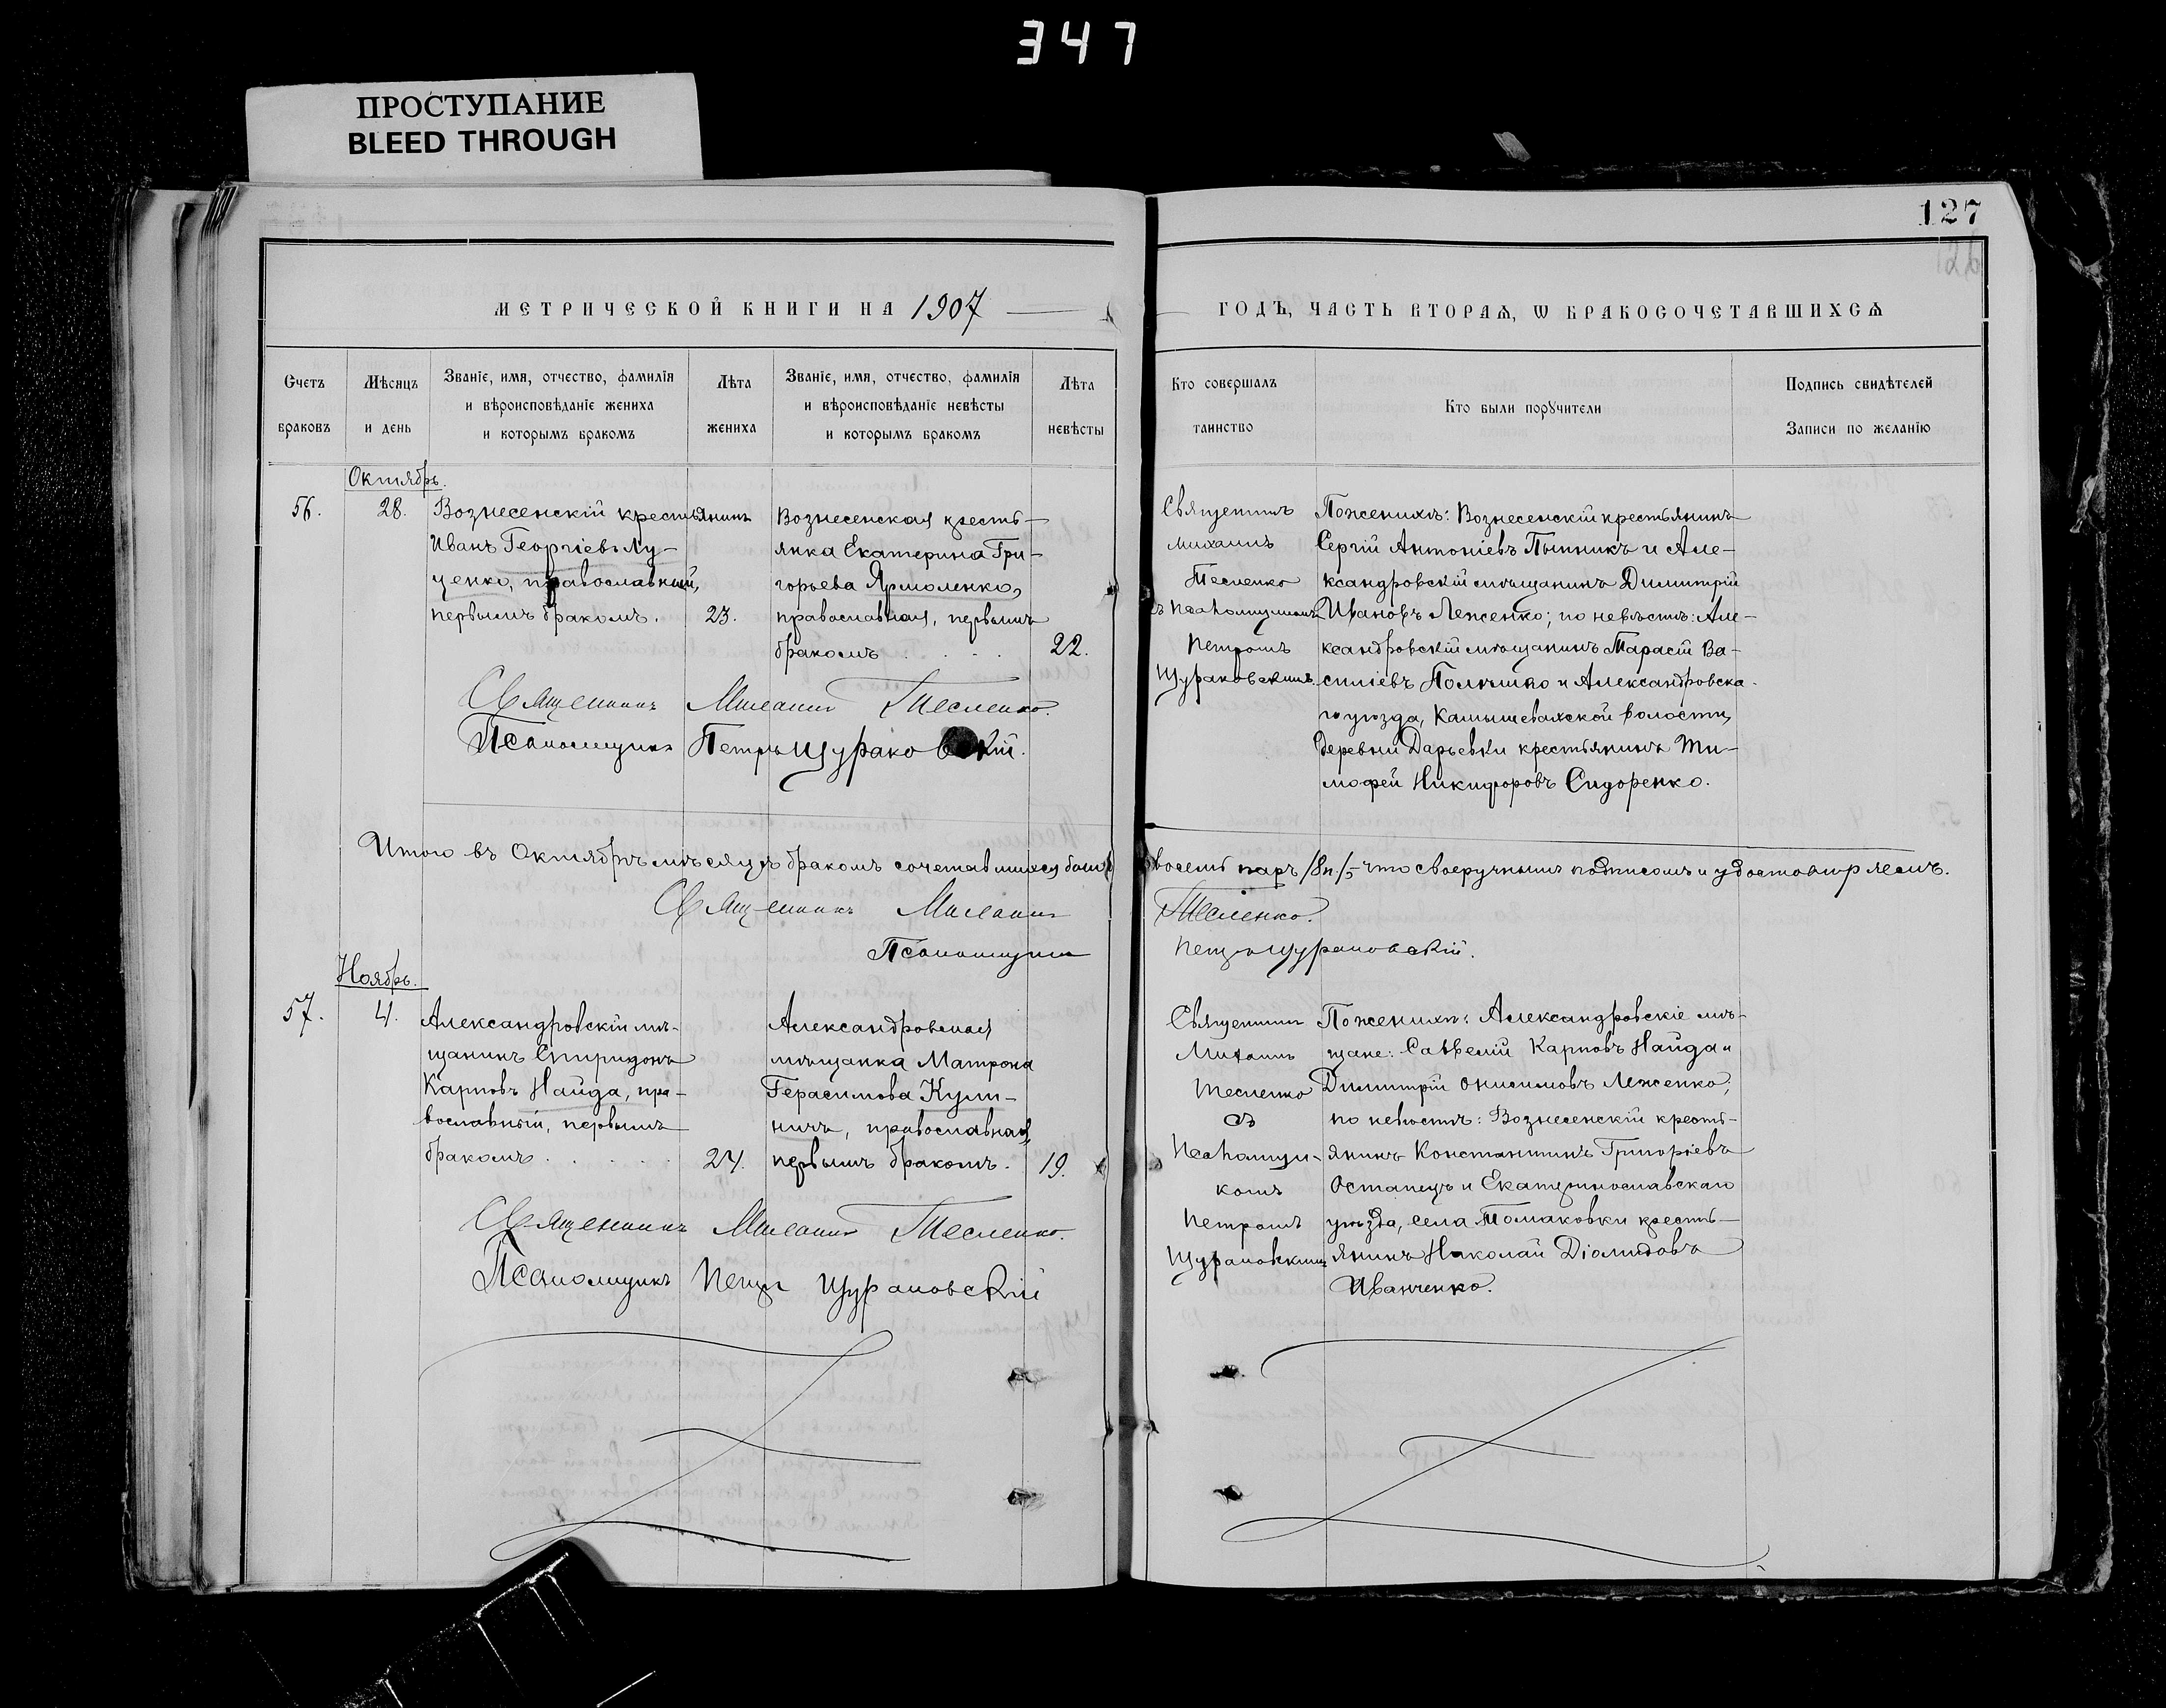 347
ПРОСТУПАНИЕ
BLEED THROUGH
127
126
МЕТРИЧЕСКОЙ КНИГИ НА 1907
ГОДЪ, ЧАСТЬ ВТОРАѦ, Ѡ БРАКОСОЧЕТАВШИХСѦ
Счетъ браковъ
Мѣсяцъ и день
Званіе, имя, отчество, фамилія и вѣроисповѣданіе жениха и которымъ бракомъ
Лѣта жениха
Званіе, имя, отчество, фамилія и вѣроисповѣданіе невѣсты и которымъ бракомъ
Лѣта невѣсты
Кто совершалъ таинство
Кто были поручители
Подпись свидѣтелей Записи по желанію
Октябрь.
56.
28.
Вознесенскій крестьянинъ
Иванъ Георгіевъ Лу-
ценко, православный,
первымъ бракомъ.
23.
Вознесенская кресть-
янка Екатерина Гри-
горьева Ярмоленко,
православная, первымъ
бракомъ . . .
22.
Священникъ
Михаилъ
Тесленко
съ псаломщикомъ
Петромъ
Щураковскимъ.
По женихѣ: Вознесенскій крестьянинъ
Сергій Антоніевъ и Але-
ксандровскій мѣщанинъ Димитрій
Ивановъ Леженко; по невѣстѣ: Але-
ксандровскій мѣщанинъ Тарасій Ва-
силіевъ и Александровска-
го уѣзда, Камышевахской волости,
деревни Дарьевки крестьянинъ Ти-
мофей Никифоровъ Сидоренко.
Священникъ Михаилъ Тесленко.
Псаломщикъ Петръ Щураковскій.
Итого въ Октябрѣ мѣсяцѣ бракомъ сочетавшихся было восемь паръ /8 п./ что своеручнымъ подписомъ и удостовѣряемъ.
Священникъ Михаилъ Тесленко.
Псаломщикъ Петръ Щураковскій.
Ноябрь.
57.
4.
Александровскій мѣ-
щанинъ Спиридонъ
Карповъ Найда, пра-
вославный, первымъ
бракомъ . . . . .
24.
Александровская
мѣщанка Матрона
Герасимова Кули-
ничъ, православная,
первымъ бракомъ.
19.
Священникъ
Михаилъ
Тесленко
съ
Псаломщи-
комъ
Петромъ
Щураковскимъ
По женихѣ: Александровскіе мѣ-
щане: Савелій Карповъ Найда и
Димитрій Онисимовъ Леженко;
по невѣстѣ: Вознесенскій кресть-
янинъ Константинъ Григоріевъ
Остапецъ и Екатеринославскаго
уѣзда, села Томаковки кресть-
янинъ Николай Діомидовъ
Иванченко.
Священникъ Михаилъ Тесленко.
Псаломщикъ Петръ Щураковскій